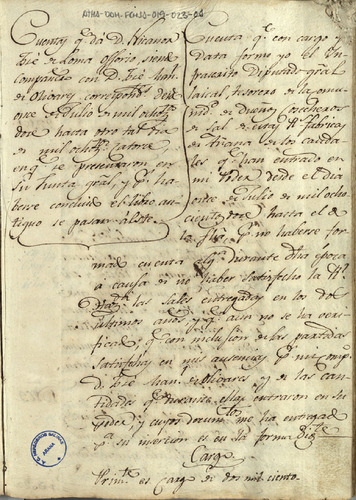 ATHA-DOH-FCHJO-019-023-06
Cuentas q.e da D. Nicanor
José de Loma Ossorio siend
Compañero con D. José fran.
de Olivares correspond.s desde
once de Julio de mil ochoz.
doze hasta otro tal dia
de mil ochoz.s catorce
en q.e se presentaron en
su Junta gral, y p.r ha
berse concluido el libro anti
tiguo se pasan a este
Cuenta q.e con cargo y
data formo yo el In
frascrito Diputado gral
laical tesorero de la comu
nid.d de Dueños Cavalleros
de Sal de estas R.s fabricas
de Añana de los caudales
q.e han entrado en
mi Poder desde el dia
once de Julio de mil ocho
cientos doze hasta el de
la fha p.r no haberse for
mado cuenta alg.a durante dha época
a causa de no haber satisfecho la R.l
las sales entregadas en los dos
ultimos años y q.e aun no se ha veri
ficado, q.e con inclusion de las partidas
satisfechas en mis ausencias p.r mi comp.o
D. José fran.co de Olivares y de las can
tidades q.e durante ellas entraron en su
poder y cuyos docum.tos me ha entregado
p.a su insercion es en la forma sig.te
Cargo
Prim.te es Cargo de dos mil ciento
ATHA